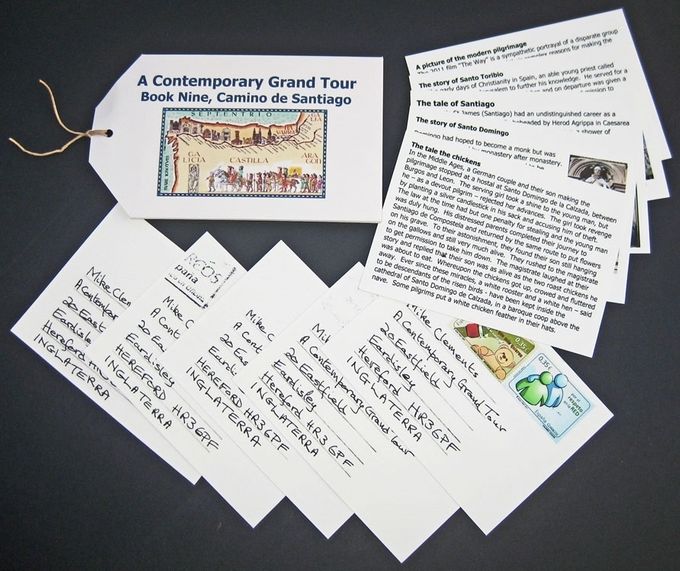 A Contemporary Grand Tour
Book Nine, Camino de Santiago
SEPTENTRIO
GA
LICIA
CASTILLA
ARA
GON
A picture of the modern pilgrimage
The 2011 film "The Way" is a sympathetic portrayal of a disparate group
reasons for making the
The story of Santo Toribio
early days of Christianity in Spain, an able young priest called
to further his knowledge. He served for a
and on departure was given a
mission to
The tale of Santiago
St James (Santiago) had an undistinguished career as a
beheaded by Herod Agrippa in Caesarea
a shower of
The story of Santo Domingo
Domingo had hoped to become a monk but was
monastery after monastery.
The tale the chickens
In the Middle Ages, a German couple and their son making the
pilgrimage stopped at a hostal at Santo Domingo de la Calzada, between
Burgos and Leon. The serving girl took a shine to the young man, but
he – as a devout pilgrim – rejected her advances. The girl took revenge
by planting a silver candlestick in his sack and accusing him of theft.
The law at the time had but one penalty for stealing and the young man
was duly hung. His distressed parents completed their journey to
Santiago de Compostela and returned by the same route to put flowers
on his grave. To their astonishment, they found their son still hanging
on the gallows and still very much alive. They rushed to the magistrate
to get permission to take him down. The magistrate laughed at their
story and replied that their son was as alive as the two roast chickens he
was about to eat. Whereupon the chickens got up, crowed and fluttered
away. Ever since these miracles, a white rooster and a white hen – said
to be descendants of the risen birds - have been kept inside the
cathedral of Santo Domingo de Calzada, in a baroque coop above the
nave. Some pilgrims put a white chicken feather in their hats.
Mike Clem
A Contempor
20 East
Eardisle
Hereford
INGLATERRA
Mike C
A Cont
20 Ea
Eardis
HEREFORD HR3 6PF
INGLATERRA
Mike C
A Con
20 Ea
Eardisley
HEREFORD HR3 6PF
INGLATERRA
A Contemporary Grand Tour
20 Eastfield
Eardisley
Hereford HR3 6PF
INGLATERRA
Mike Clements
A Contemporary Grand Tour
20 Eastfield
Eardisley
Hereford HR3 6PF
INGLATERRA
0,35€
0,35€